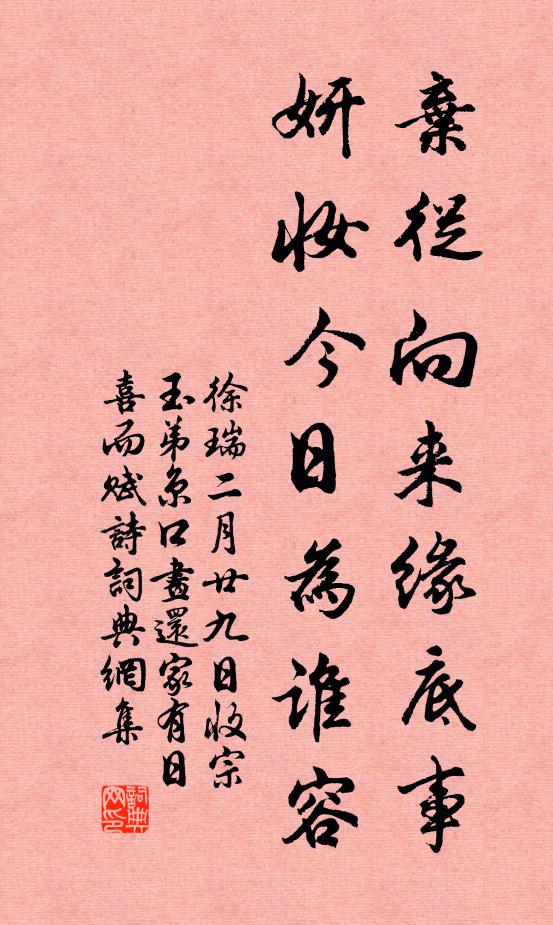 棄從向来緣底事
妍妝今日為誰容
徐瑞二月廿九日收宗
玉弟京口書還家有日
喜而赋詩詞典網集
詞典网印